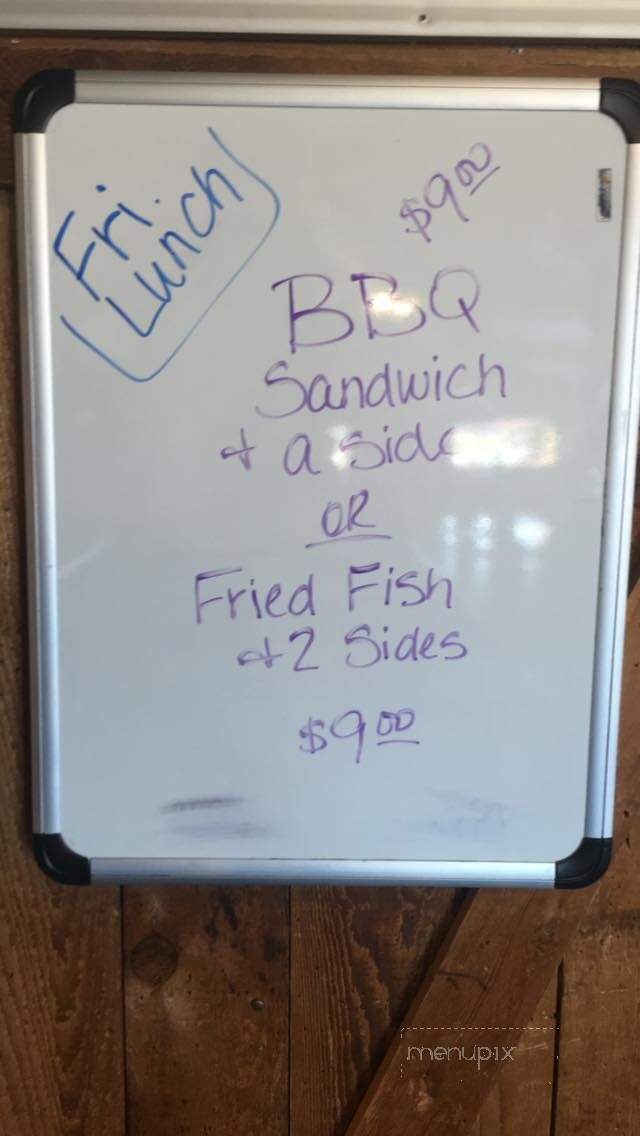 Fri.
Lunch
$9.00
BBQ
Sandwich
+ a side
OR
Fried Fish
+ 2 Sides
$9.00
menupix